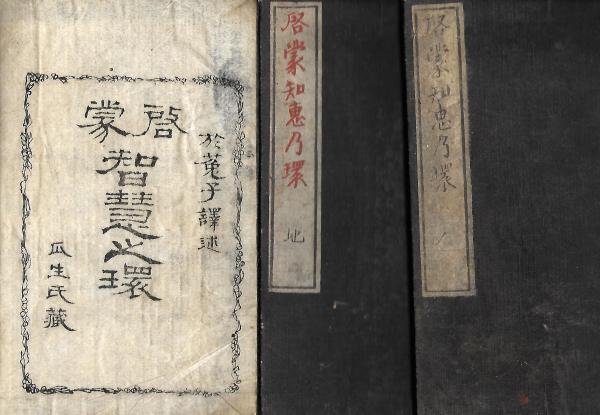 於菟子譯述
啓蒙
智慧之環
瓜生氏藏
啓蒙知惠乃環
地
啓蒙知惠乃環